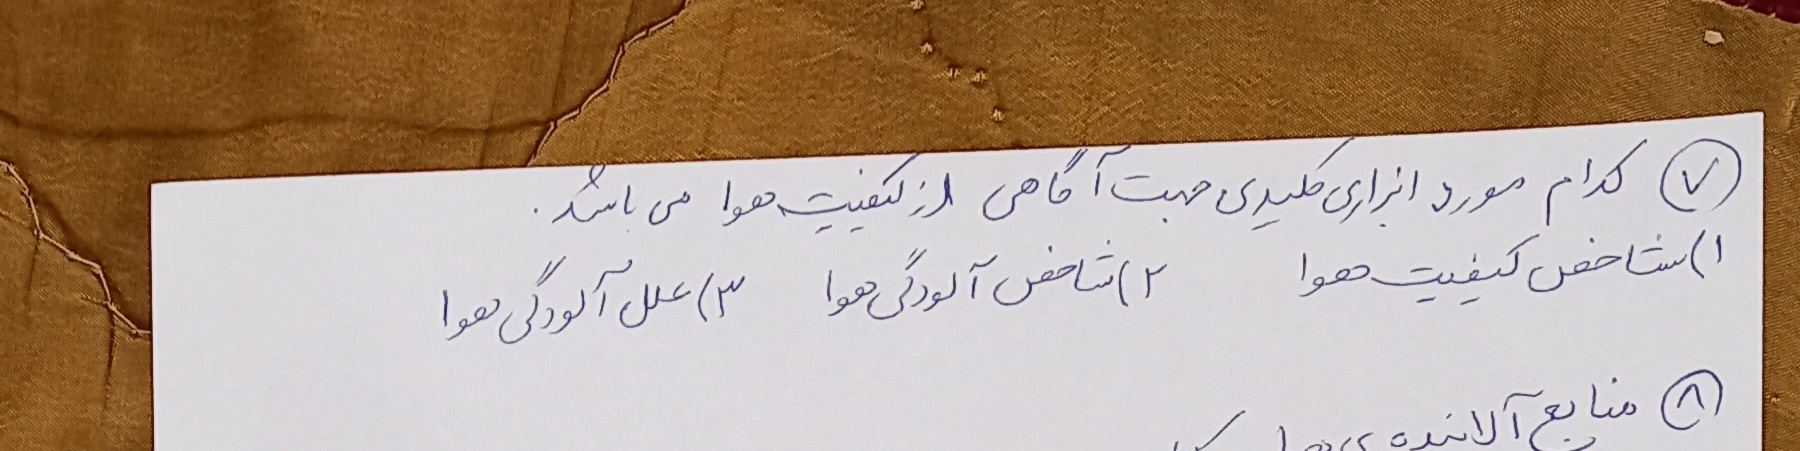 ۷ کدام مورد ابزاری کلیدی جهت آگاهی از کیفیت هوا می باشد.
۱) شاخص کیفیت هوا ۲) شاخص آلودگی هوا ۳) علل آلودگی هوا
۸ منابع آلاینده ی